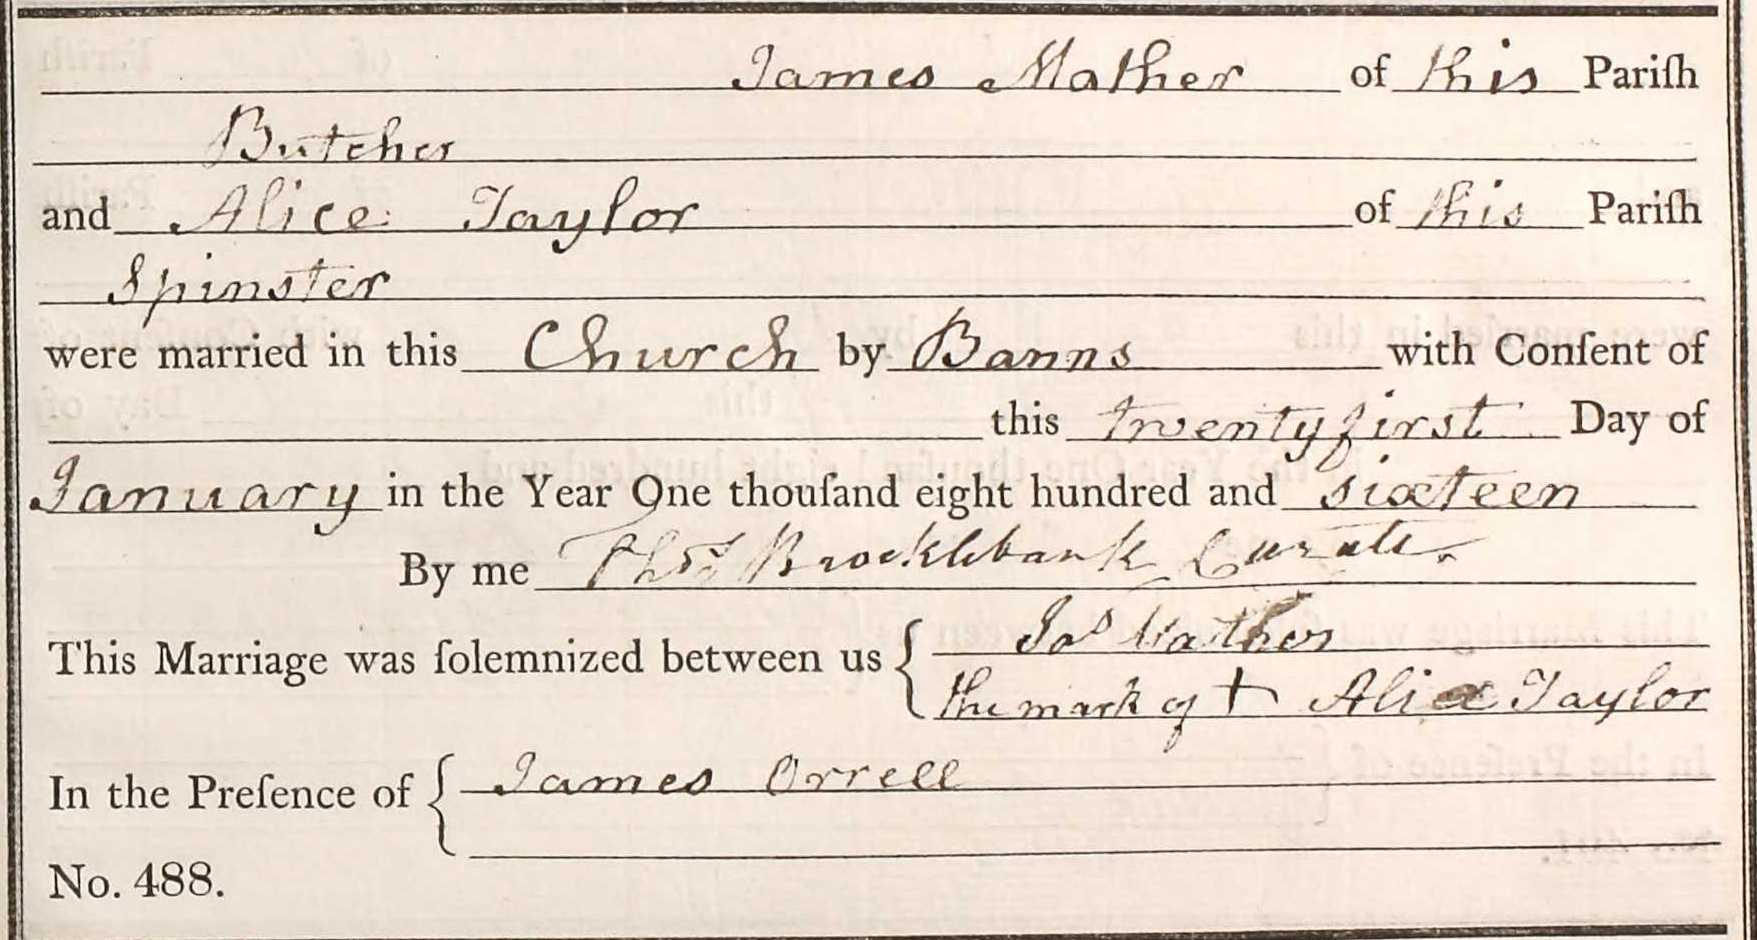 James Mather of this Pariſh
Butcher
and Alice Taylor of this Pariſh
Spinster
were married in this Church by Banns with Conſent of
this twentyfirst Day of
January in the Year One thouſand eight hundred and sixteen
By me Thos Brocklebank Curate
This Marriage was ſolemnized between us { Jas Mather
the mark of + Alice Taylor
In the Preſence of { James Orrell
No. 488.